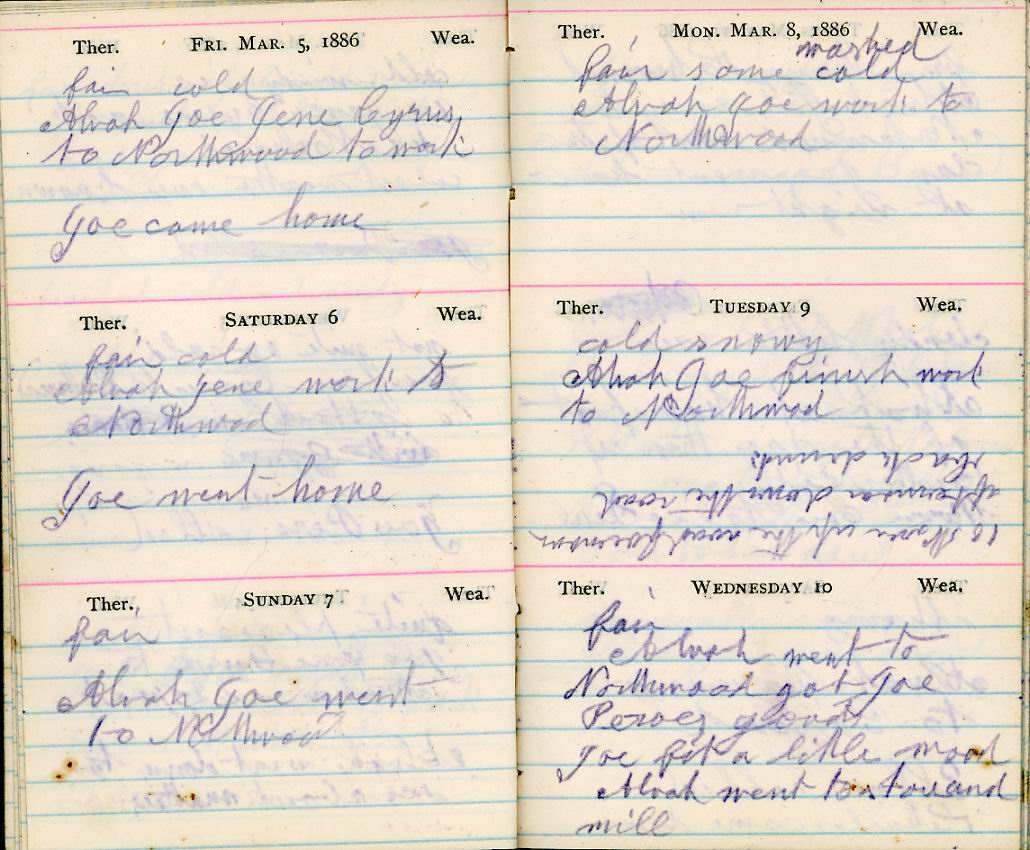 Ther. FRI. MAR. 5, 1886 Wea.
fair cold
Alvah Joe Gene Cyrus
to Northwood to work
Joe came home
Ther. SATURDAY 6 Wea.
fair cold
Alvah Gene work to
Northwood
Joe went home
Ther. SUNDAY 7 Wea.
fair
Alvah Joe went
to Northwood
Ther. MON. MAR. 8, 1886 Wea.
washed
fair some cold
Alvah Joe work to
Northwood
Ther. TUESDAY 9 Wea.
cold snowy
Alvah Joe finish work
to Northwood
up the road forenoon
afternoon down the road
drunk
Ther. WEDNESDAY 10 Wea.
fair
Alvah went to
Northwood got Joe
goods
Joe fit a little wood
Alvah went to store and
mill